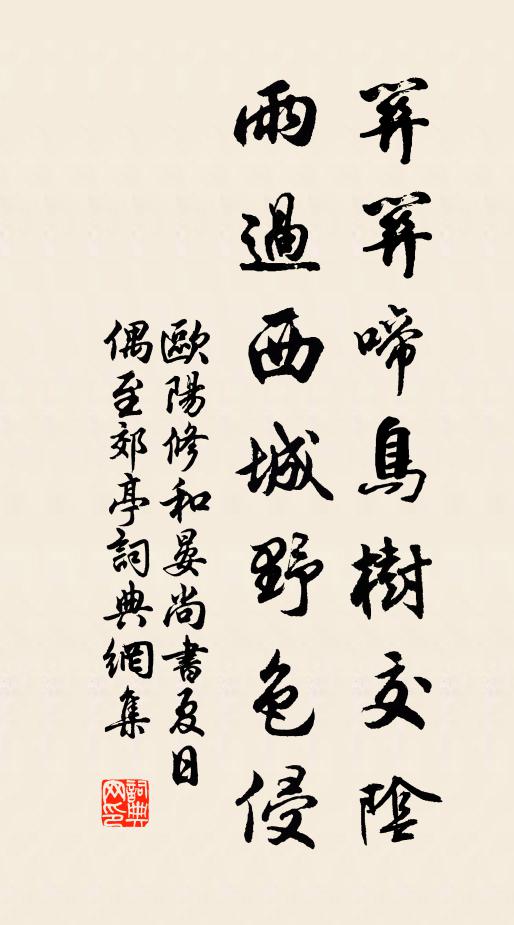 關關啼鳥樹交陰
雨過西城野色侵
歐陽修和晏尚書夏日
偶至郊亭詞典網集
詞典
网印